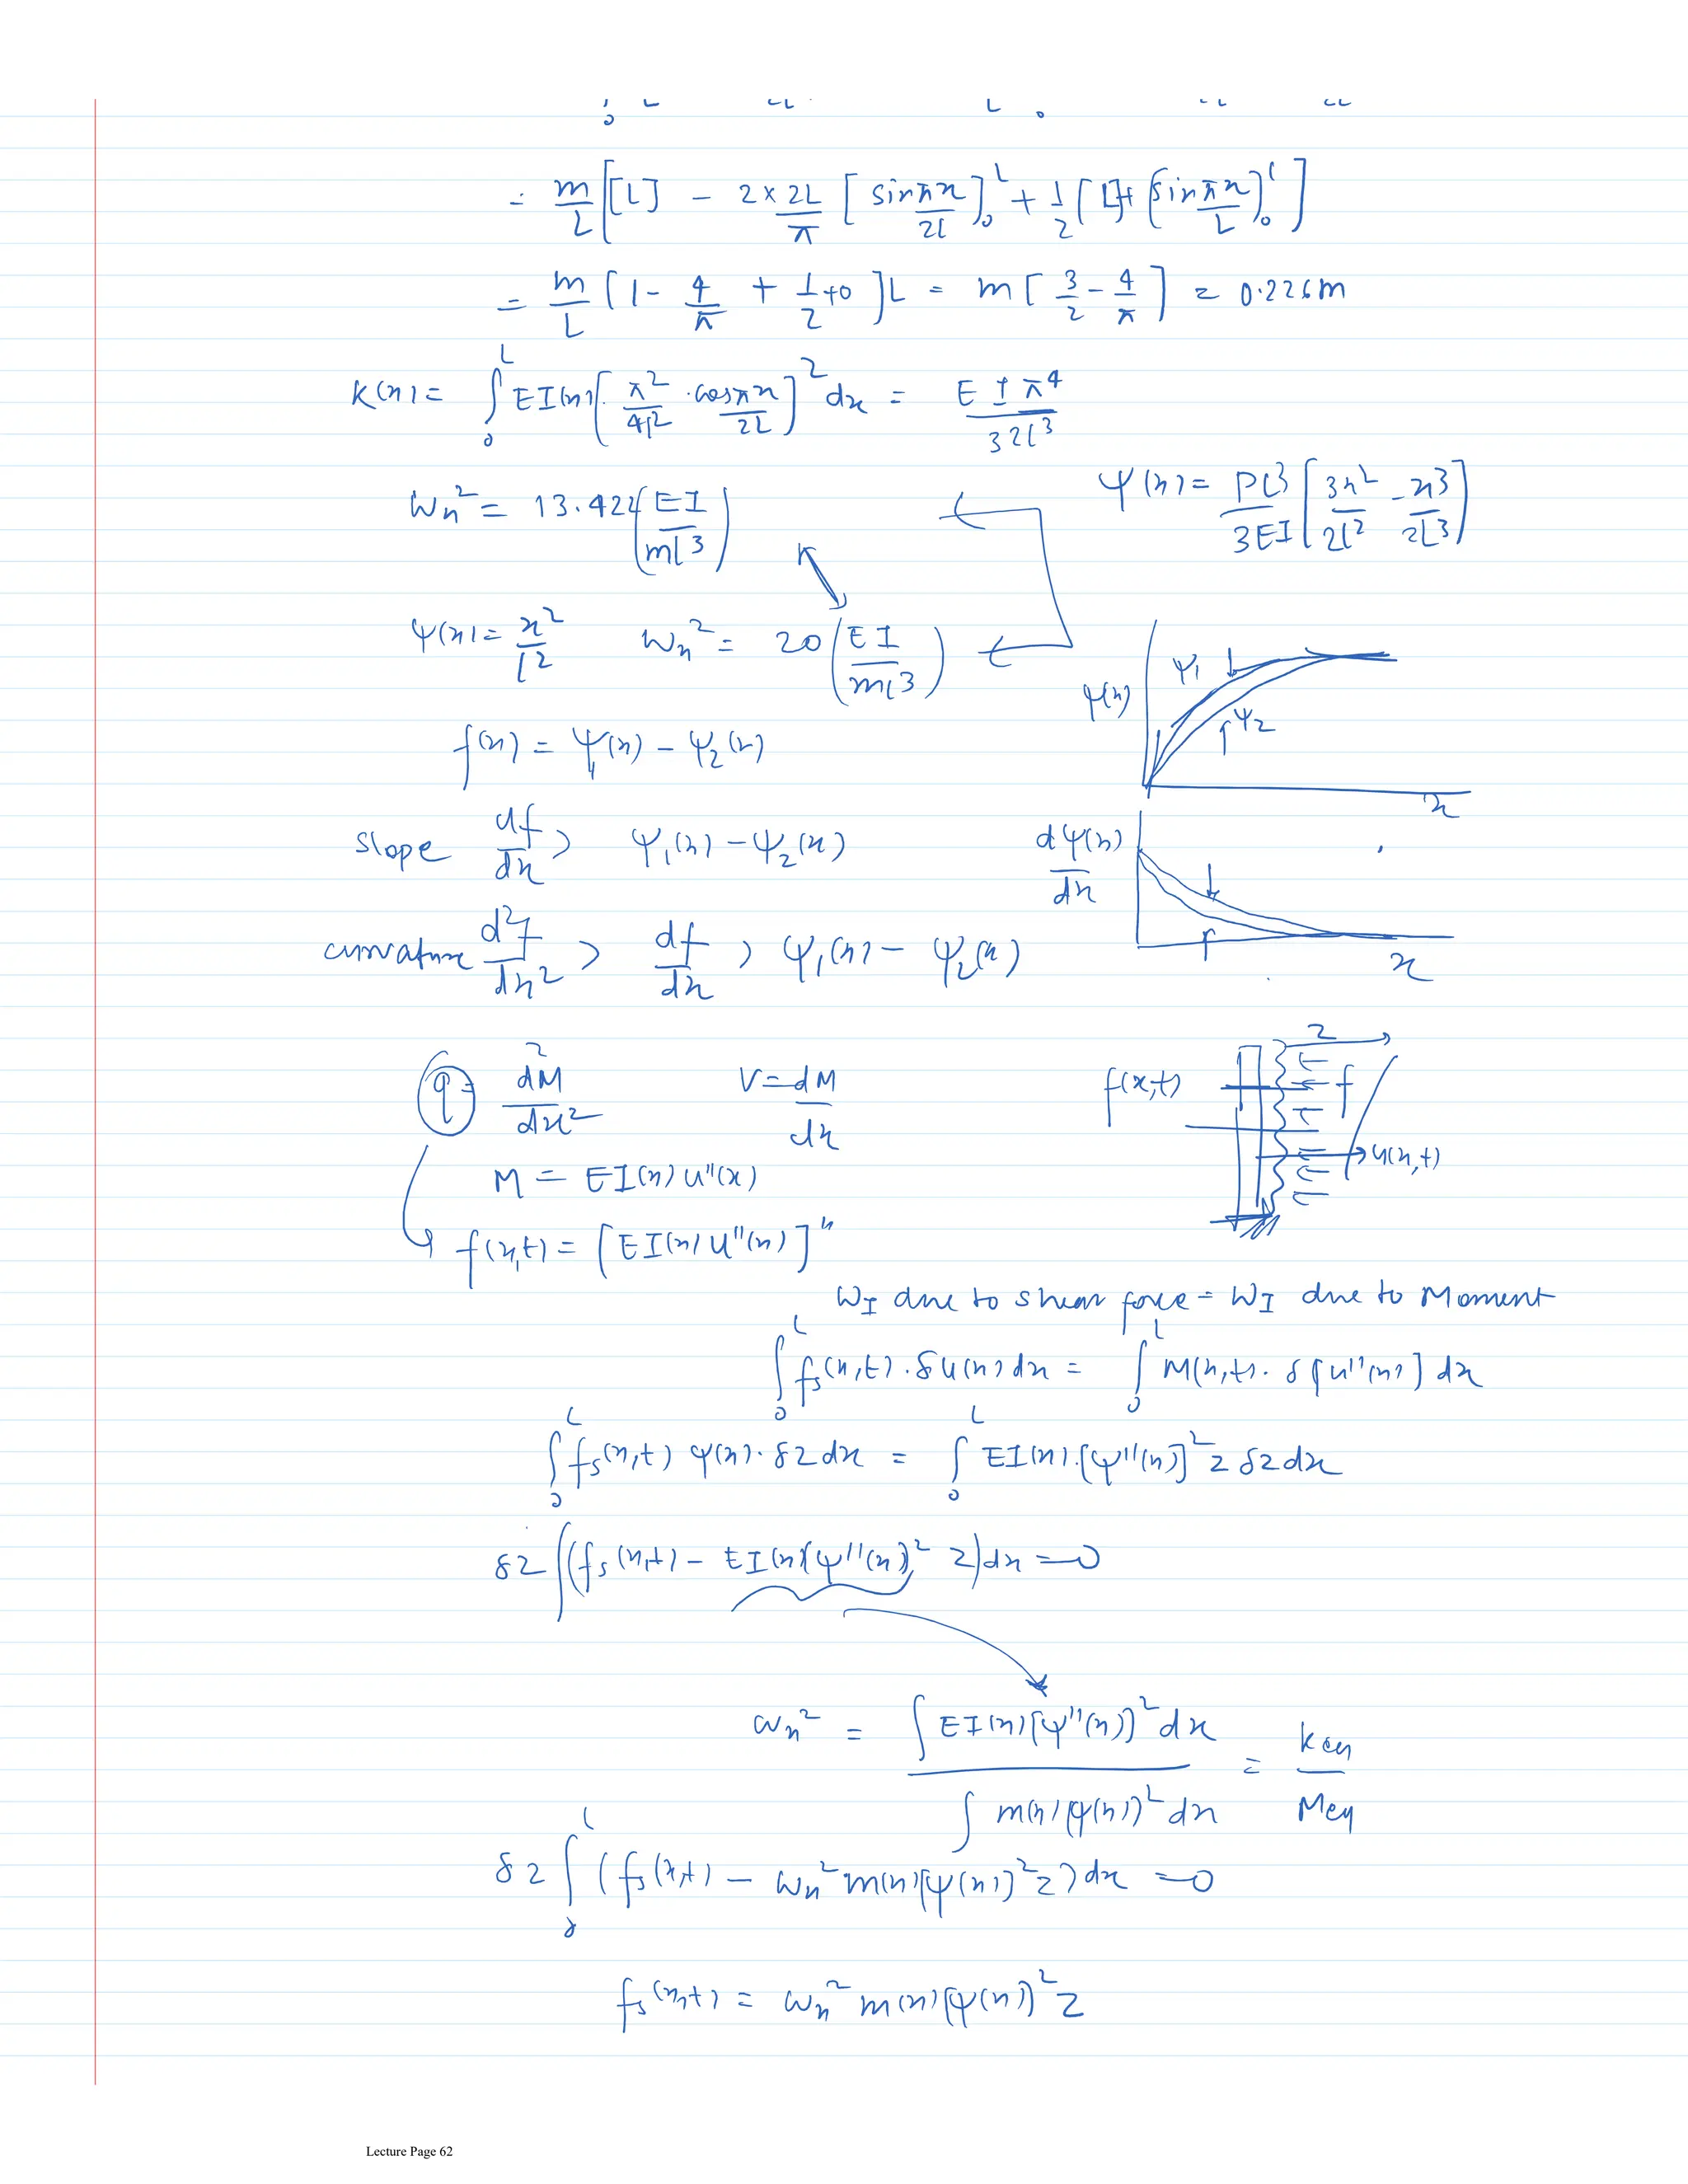 = m/L [[L] - 2×2L/π [sin πx/2L]₀ᴸ + 1/2 [L]+[sin πx/L]₀ᴸ]
= m/L [1 - 4/π + 1/2 +0]L = m[3/2 - 4/π] = 0.226m
K(x) = ∫₀ᴸ EI(x)[π²/4L² · cos πx/2L]² dx = EIπ⁴/32L³
ψ(x) = PL³/3EI [3x²/2L² - x³/2L³]
ωn² = 13.422(EI/mL³)
ψ(x) = x²/L² ωn² = 20(EI/mL³)
ψ(x) ψ1 ψ2 x
f(x) = ψ1(x) - ψ2(x)
slope df/dx > ψ1(x) - ψ2(x)
dψ(x)/dx x
curvature d²f/dx² > df/dx > ψ1(x) - ψ2(x)
q = d²M/dx² V = dM/dx
f(x,t) z f u(x,t)
M = EI(x) u''(x)
f(x,t) = [EI(x) u''(x)]''
WI due to shear force = WI due to Moment
∫₀ᴸ fs(x,t) · δu(x) dx = ∫₀ᴸ M(x,t) · δ[u''(x)] dx
∫₀ᴸ fs(x,t) ψ(x) · δz dx = ∫₀ᴸ EI(x) · [ψ''(x)]² z δz dx
δz ∫(fs(x,t) - EI(x)(ψ''(x))² z) dx = 0
ωn² = ∫ EI(x)[ψ''(x)]² dx / ∫ m(x)[ψ(x)]² dx = keq/Meq
δz ∫₀ᴸ (fs(x,t) - ωn² m(x)[ψ(x)]² z) dx = 0
fs(x,t) = ωn² m(x)[ψ(x)]² z
Lecture Page 62